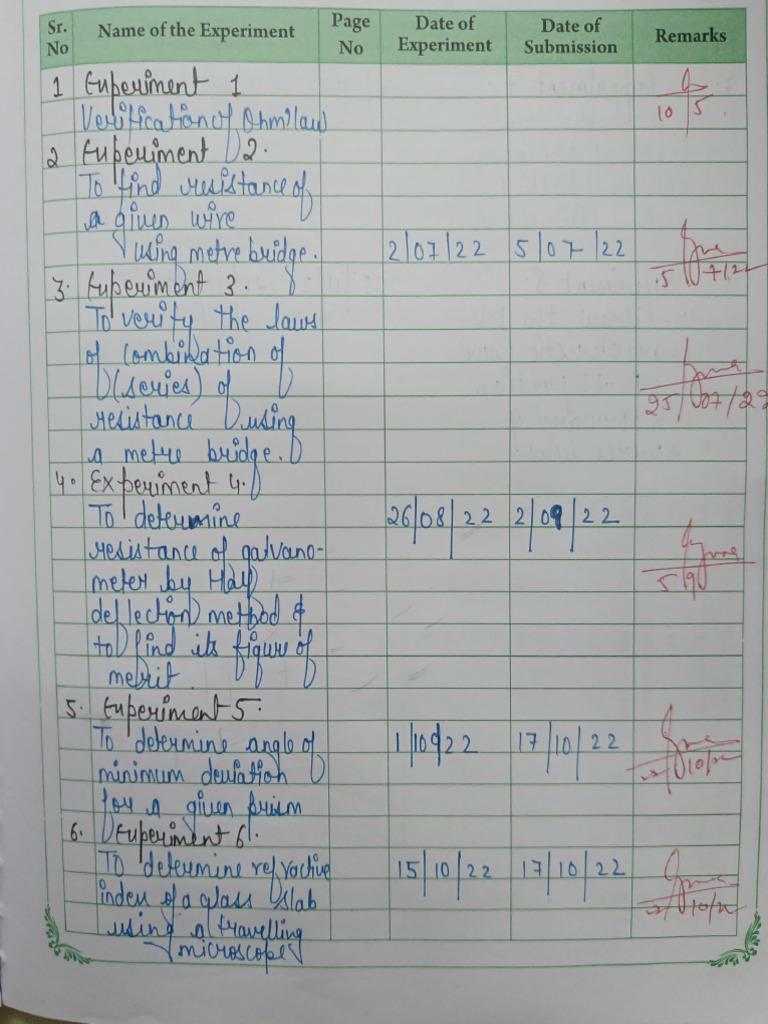 Sr. No Name of the Experiment Page No Date of Experiment Date of Submission Remarks
1 Experiment 1
Verification of Ohm's law
10/5
2 Experiment 2.
To find resistance of
a given wire
using metre bridge. 2/07/22 5/07/22
5/7/22
3. Experiment 3.
To verify the laws
of combination of
(series) of
resistance using
a metre bridge.
25/07/22
4. Experiment 4.
To determine 26/08/22 2/09/22
resistance of galvano-
meter by Half
deflection method &
to find its figure of
merit.
5/9
5. Experiment 5.
To determine angle of 1/10/22 17/10/22
minimum deviation
for a given prism
6. Experiment 6.
To determine refractive 15/10/22 17/10/22
index of a glass slab
using a travelling
microscope